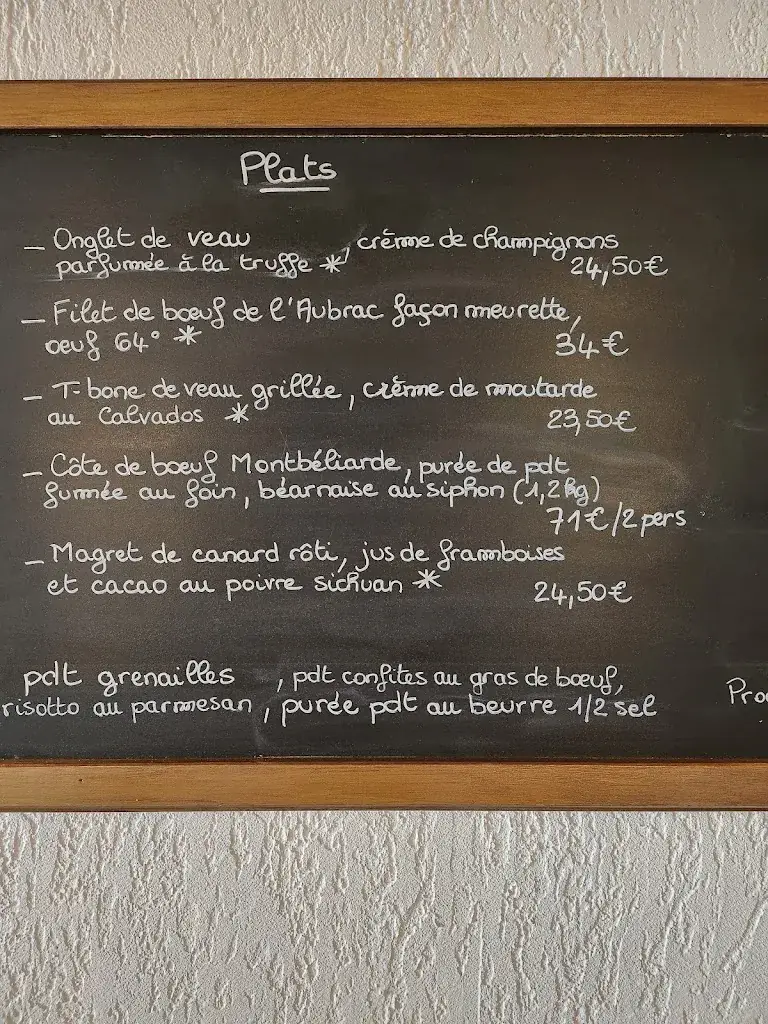 Plats
— Onglet de veau , crème de champignons
parfumée à la truffe * 24,50€
— Filet de bœuf de l'Aubrac façon meurette,
oeuf 64° * 34€
— T-bone de veau grillée, crème de moutarde
au Calvados * 23,50€
— Côte de bœuf Montbéliarde, purée de pdt
fumée au foin, béarnaise au siphon (1,2kg)
71€/2 pers
— Magret de canard rôti, jus de framboises
et cacao au poivre sichuan * 24,50€
pdt grenailles , pdt confites au gras de bœuf,
risotto au parmesan, purée pdt au beurre 1/2 sel